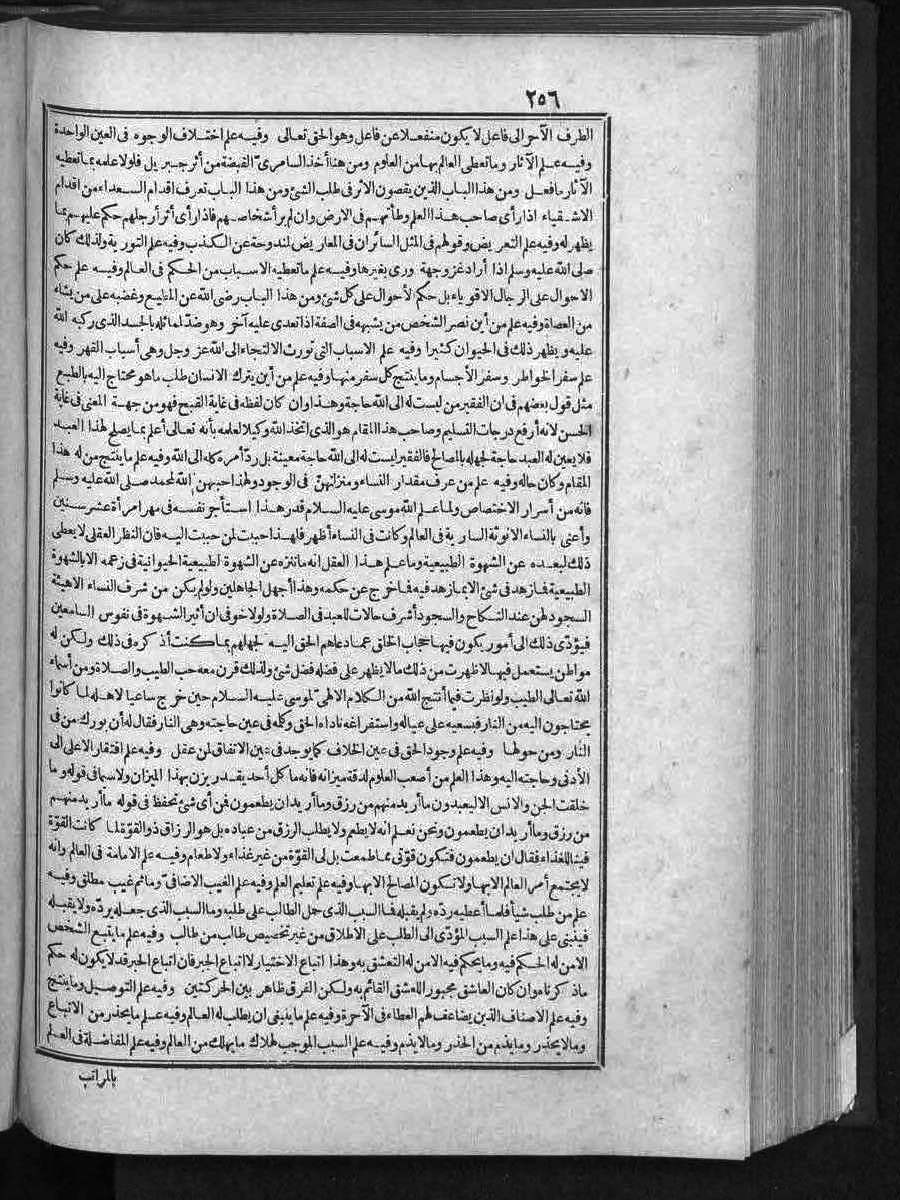 ٢٥٦
الطرف الآخر الى فاعل لا يكون منفعلا عن فاعل وهو الحق تعالى وفيه علم اختلاف الوجوه فى العين الواحدة
وفيه علم الآثار وما تعطى العالم بها من العلوم ومن هنا أخذ السامرىّ القبضة من أثر جبريل فلولا علمه بما تعطيه
الآثار ما فعل ومن هذا الباب الذين يقصون الأثر فى طلب الشئ ومن هذا الباب تعرف اقدام السعداء من اقدام
الاشقياء اذا رأى صاحب هذا العلم وطأتهم فى الارض وان لم ير أشخاصهم فاذا رأى أثر أرجلهم حكم عليهم بما
يظهر له وفيه علم التعريض وقولهم فى المثل السائر ان فى المعاريض لمندوحة عن الكذب وفيه علم التورية ولذلك كان
صلى الله عليه وسلم اذا أراد غزو جهة ورى بغيرها وفيه علم ما تعطيه الاسباب من الحكم فى العالم وفيه علم حكم
الاحوال على الرجال الاقوياء بل حكم الأحوال على كل شئ ومن هذا الباب رضى الله عن المتابع وغضبه على من يشاء
من العصاة وفيه علم من أين نصر الشخص من يشبهه فى الصفة اذا تعدى عليه آخر وهو ضدّ لما ثله بالحسد الذى ركبه الله
عليه ويظهر ذلك فى الحيوان كثيرا وفيه علم الاسباب التى تورث الالتجاء الى الله عز وجل وهى أسباب القهر وفيه
علم سفر الخواطر وسفر الأجسام وما ينتج كل سفر منها وفيه علم من أين يترك الانسان طلب ما هو محتاج اليه بالطبع
مثل قول بعضهم فى ان الفقير من ليست له الى الله حاجة وهذا وان كان لفظه فى غاية القبح فهو من جهة المعنى فى غاية
الحسن لانه أرفع درجات التسليم وصاحب هذا المقام هو الذى اتخذ الله وكيلا لعلمه بأنه تعالى أعلم بما يصلح لهذا العبد
فلا يعين له العبد حاجة لجهله بالمصالح فالفقير ليست له الى الله حاجة معينة بل ردّ أمره كله الى الله وفيه علم ما ينتج من له هذا
المقام وكان حاله وفيه علم من عرف مقدار النساء ومنزلتهنّ فى الوجود ولهذا حببهنّ الله لمحمد صلى الله عليه وسلم
فانه من أسرار الاختصاص ولما علم الله موسى عليه السلام قدر هذا استأجر نفسه فى مهر امرأة عشر سنين
وأعنى بالنساء الانوثة السارية فى العالم وكانت فى النساء أظهر فلهذا حببت لمن حببت اليه فان النظر العقلى لا يعطى
ذلك لبعده عن الشهوة الطبيعية وما علم هذا العقل انه ما تنزه عن الشهوة الطبيعية الحيوانية فى زعمه الا بالشهوة
الطبيعية فما زهد فى شئ الا بما زهد فيه فما خرج عن حكمه وهذا أجهل الجاهلين ولو لم يكن من شرف النساء الا هيئة
السجود لهنّ عند النكاح والسجود أشرف حالات للعبد فى الصلاة ولولا خوفى ان أثير الشهوة فى نفوس السامعين
فيؤدّى ذلك الى أمور يكون فيها حجاب الخلق عما دعاهم الحق اليه لجهلهم بما كنت أذكره فى ذلك ولكن له
مواطن يستعمل فيها لاظهرت من ذلك ما لا يظهر على فضله فضل شئ ولذلك قرن معه حب الطيب والصلاة ومن أسماء
الله تعالى الطيب ولو نظرت فيما أنتج الله من الكلام الالهىّ لموسى عليه السلام حين خرج ساعيا لاهله لما كانوا
يحتاجون اليه من النار فبسعيه على عياله واستفراغه ناداه الحق وكلمه فى عين حاجته وهى النار فقال له أن بورك من فى
النار ومن حولها وفيه علم وجود الحق فى عين الخلاف كما يوجد فى عين الاتفاق لمن عقل وفيه علم افتقار الاعلى الى
الأدنى وحاجته اليه وهذا العلم من أصعب العلوم لدقة ميزانه فانه ما كل أحد يقدر يزن بهذا الميزان ولا سيما فى قوله وما
خلقت الجن والانس الا ليعبدون ما أريد منهم من رزق وما أريد ان يطعمون فمن أى شئ تحفظ فى قوله ما أريد منهم
من رزق وما أريد ان يطعمون ونحن نعلم انه لا يطعم ولا يطلب الرزق من عباده بل هو الرزاق ذو القوّة لما كانت القوّة
فينا للغذاء فقال ان يطعمون فتكون قوّتى مما طعمت بل لى القوّة من غير غذاء ولا طعام وفيه علم الامامة فى العالم وانه
لا يجتمع أمر العالم الا بها ولا تكون المصالح الا بها وفيه علم تعليم العلم وفيه علم الغيب الاضافىّ وما ثم غيب مطلق وفيه
علم من طلب شيأ فلما أعطيه ردّه ولم يقبله فما السبب الذى حمل الطالب على طلبه وما السبب الذى جعله يردّه ولا يقبله
فينبنى على هذا علم السبب المؤدّى الى الطلب على الاطلاق من غير تخصيص طالب من طالب وفيه علم ما يتبع الشخص
الامن له الحكم فيه وما يحكم فيه الامن له التعشق به وهذا اتباع الاختيار لا اتباع الجبر فان اتباع الجبر قد لا يكون له حكم
ما ذكرناه وان كان العاشق مجبور العشق القائم به ولكن الفرق ظاهر بين الحركتين وفيه علم التوصيل وما ينتج
وفيه علم الاصناف الذين يضاعف لهم العطاء فى الآخرة وفيه علم ما ينبغى ان يطلب له العالم وفيه علم ما يحذر من الاتباع
وما لا يحذر وما يذم من الحذر وما لا يذم وفيه علم السبب الموجب لهلاك ما يهلك من العالم وفيه علم المفاضلة فى العلم
بالمراتب